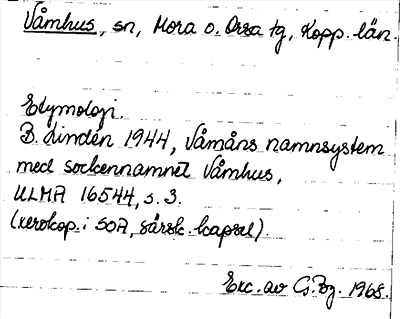 Våmhus, sn, Mora o. Orsa tg, Kopp. län.
Etymologi.
B. Lindén 1944, Våmåns namnsystem
med sockennamnet Våmhus,
ULMA 16544, s. 3.
(xerokop. i SOA, särsk. kapsel).
Exc. av G. Bg. 1968.